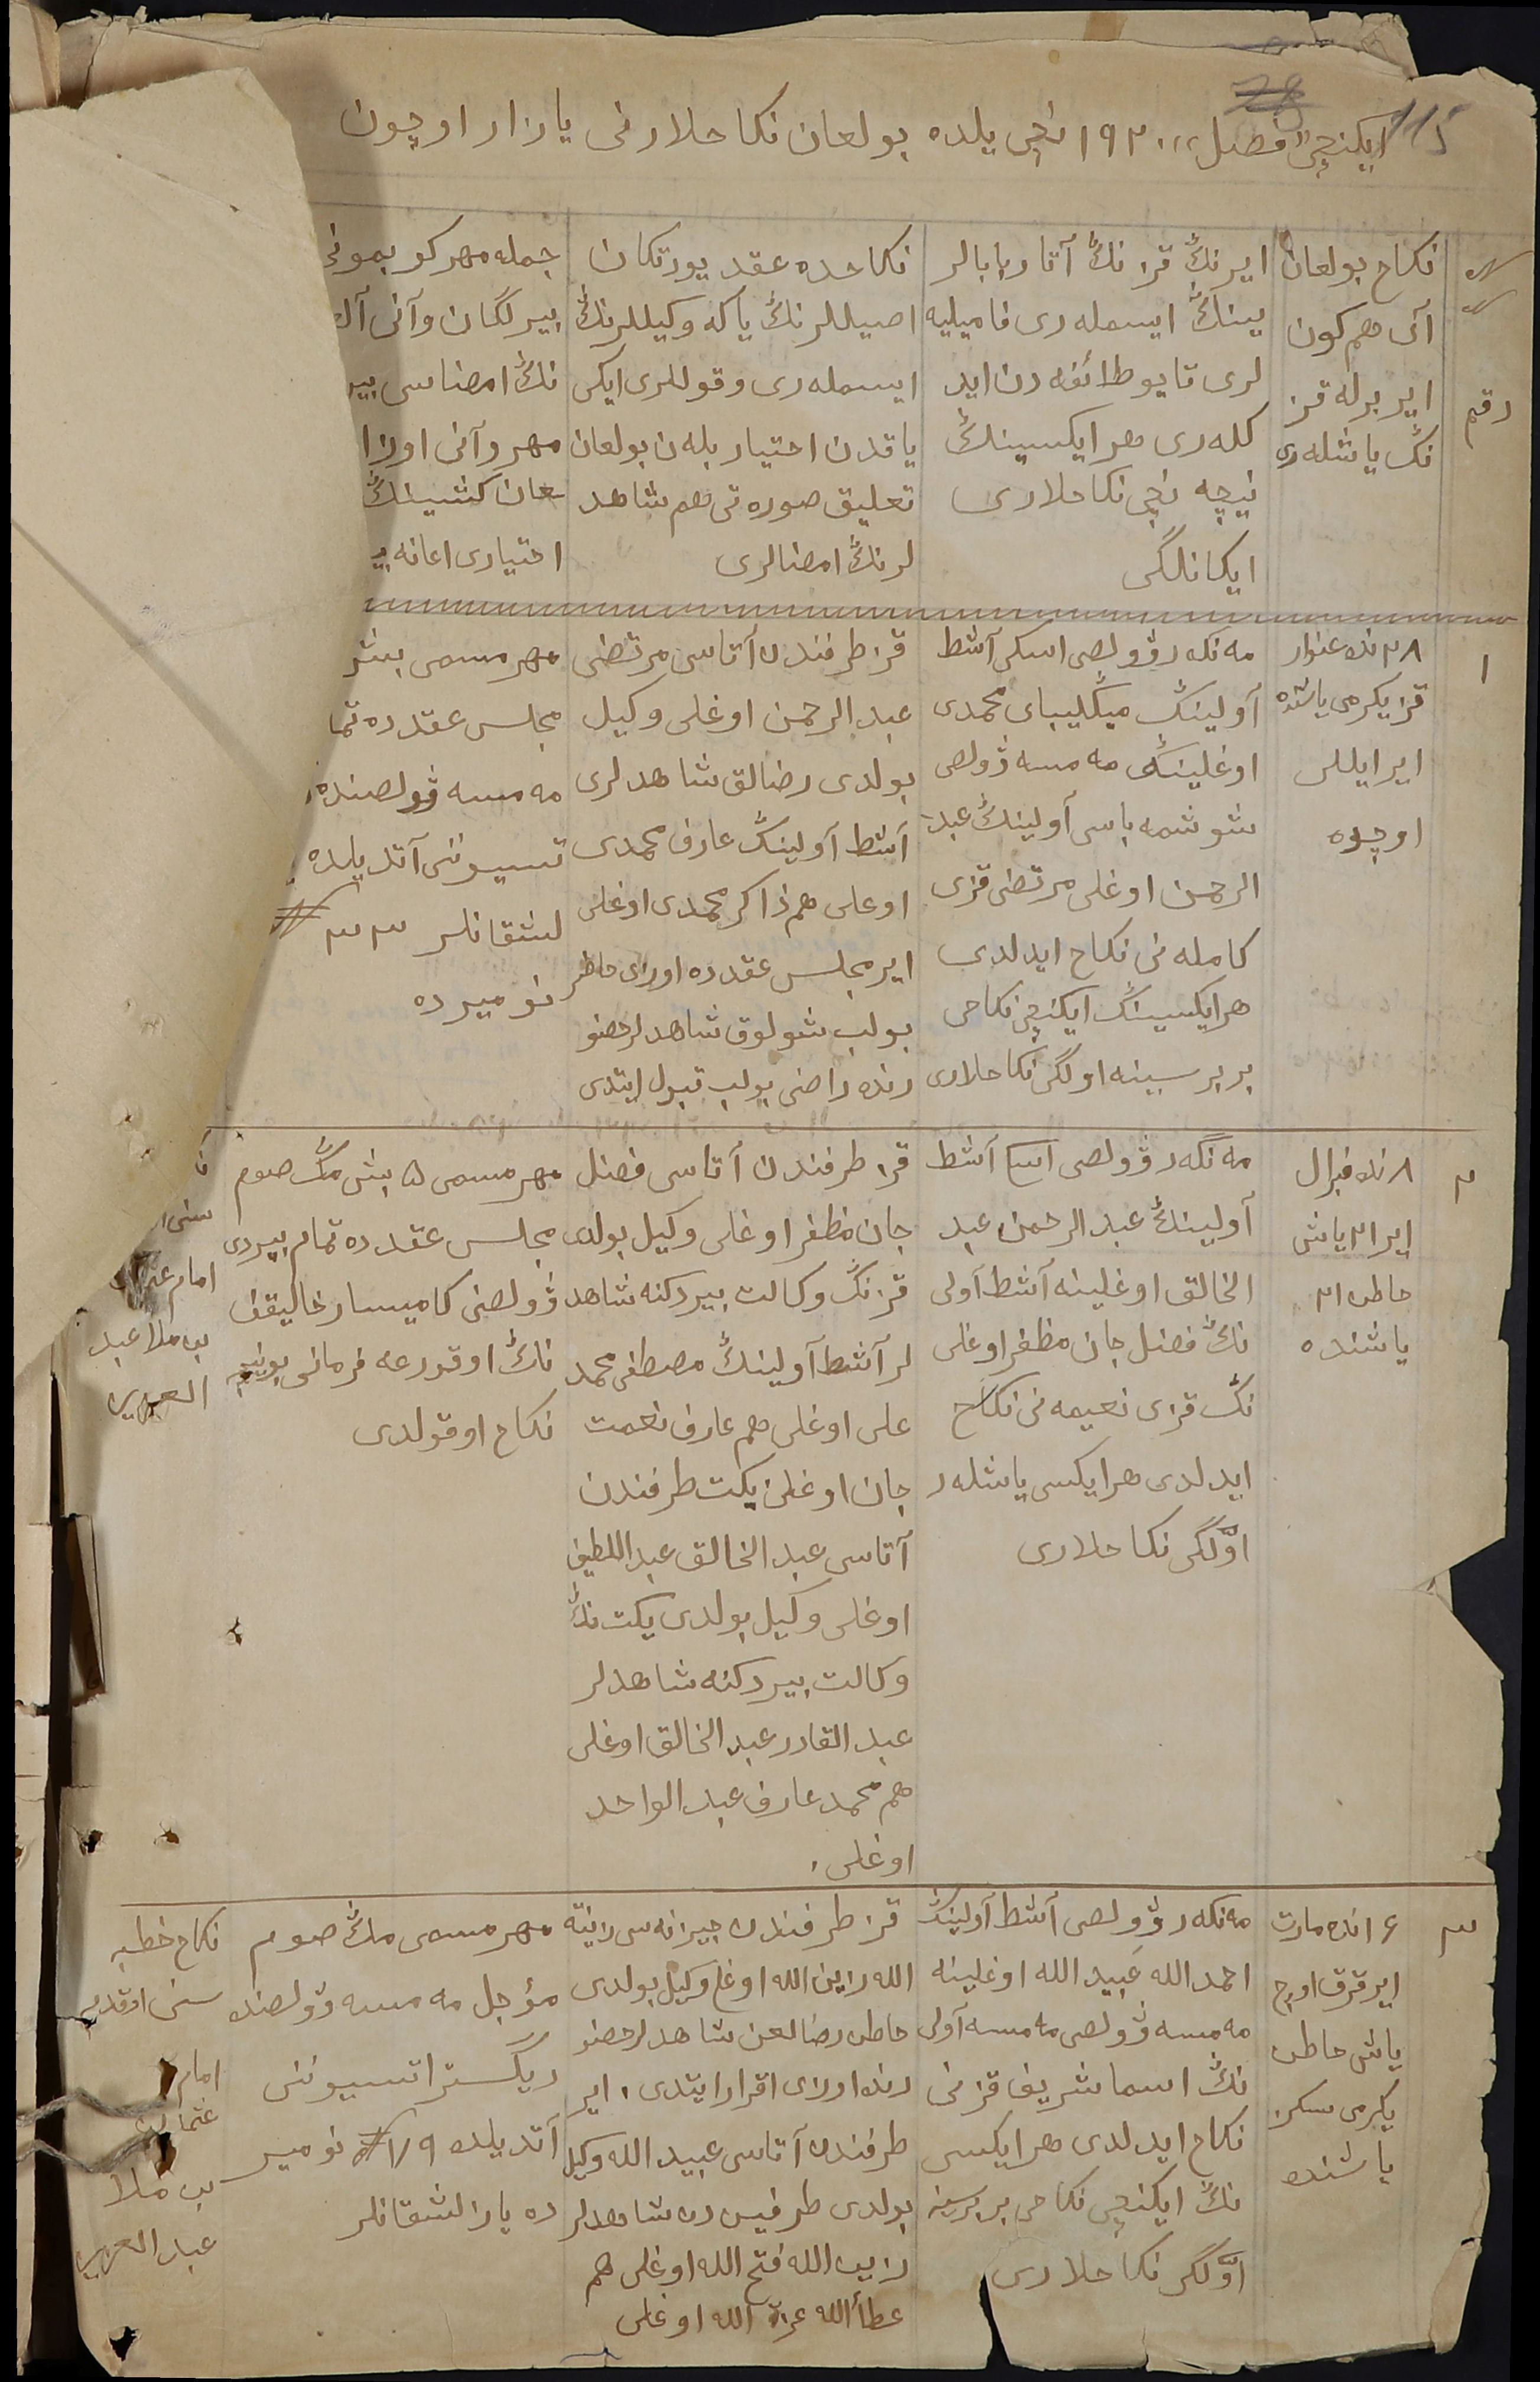 115
ایکنچی "فصل"، ۱۹۲۰ نچی یلده بولغان نکاحلارنی یازار اوچون
رقم
نکاح بولغان
آی هم کون
ایر برله قز
نڭ یاشله‌ری
ایرنڭ قزنڭ آتا و بابالر
یینڭ ایسمله‌ری فامیلیه
لری قایو طائفه‌دن اید
کله‌ری هر ایکسینڭ
نیچه نچی نکاحلاری
ایکانلگی
نکاحده عقد یورتکان
اصیللرنڭ یاکه وکیللرنڭ
ایسمله‌ری و قوللری ایکی
یاقدن احتیار بله‌ن بولغان
تعلیق صوره‌تی هم شاهد
لرنڭ امضالری
جمله مهر کوبمونی
بیرلگان وآنی
نڭ امضاسی بیر
مهر وآنی
غان کشینڭ
احتیاری اعانه
۱
۲۸ نده غنوار
قز یکرمی یاشده
ایر ایللی
اوچده
مه‌نگه‌ر ڤولصی اسکی آشط
آولینڭ میڭلیبای محمدی
اوغلینڭ مه‌مسه ڤولصی
شوشمه باسی آولینڭ عبد
الرحمن اوغلی مرتضی قزی
کامله‌نی نکاح ایدلدی
هر ایکسینڭ ایکنچی نکاحی
بربرسینه اولگی نکاحلاری
قز طرفندن آتاسی مرتضی
عبد الرحمن اوغلی وکیل
بولدی رضالق شاهدلری
آشط آولینڭ عارف محمدی
اوغلی هم ذاکر محمدی اوغلی
ایر مجلس عقدده اوزی حاظر
بولب شولوق شاهدلر حضو
رنده راضی بولب قبول ایتدی
مهر مسمی بیش
مجلس عقدده تما
مه‌مسه ڤولصنده
تسیوننی آتدیلده
لشقانلر ۳۳ №
نومیرده
۲
۸ نده فبرال
ایر ۲۱ یاش
حاطن ۲۱
یاشنده
مه‌نگه‌ر ڤولصی اسکی آشط
آولینڭ عبد الرحمن عبد
الخالق اوغلینه آشط آولی
نڭ فضل جان مظفر اوغلی
نڭ قزی نعیمه‌نی نکاح
ایدلدی هر ایکسی یاشله‌ر
اوّلگی نکاحلاری
قز طرفندن آتاسی فضل
جان مظفر اوغلی وکیل بولدی
قزنڭ وکالت بیردکنه شاهد
لر آشط آولینڭ مصطفی محمد
علی اوغلی هم عارف نعمت
جان اوغلی یکت طرفندن
آتاسی عبد الخالق عبد اللطیف
اوغلی وکیل بولدی یکت‌نڭ
وکالت بیردکنه شاهدلر
عبد القادر عبد الخالق اوغلی
هم محمد عارف عبد الواحد
اوغلی،
مهر مسمی ۵ بیش مڭ صوم
مجلس عقدده تمام بیردی
ڤولصنی کامیسار خالیقف
نڭ اوقورغه فرمانی بوینچه
نکاح اوقولدی
امام
بن ملا عبد
العزیز
۳
۱۶ نده مارت
ایر قرق اوچ
یاش حاطن
یکرمی سکز
یاشنده
مه‌نگه‌ر ڤولصی آشط آولینڭ
احمد الله عبید الله اوغلینه
مه‌مسه ڤولصی مه‌مسه آولی
نڭ اسما شریف قزنی
نکاح ایدلدی هر ایکسی
نڭ ایکنچی نکاحی بربرسینه
اوّلگی نکاحلاری
قز طرفندن
الله زین الله اوغلی وکیل بولدی
حاطن رضالغن شاهدلر حضو
رنده اوزی اقرار ایتدی، ایر
طرفندن آتاسی عبید الله وکیل
بولدی طرفیین‌دن شاهدلر
زین الله فتح الله اوغلی هم
عطاءالله عزة الله اوغلی
مهر مسمی مڭ صوم
مؤجل مه‌مسه ڤولصنده
ریگستراتسیوننی
آتدیلده ۱۷۹ № نومیر
ده یازلشقانلر
نکاح خطبه
سنی اوقدم
امام
عثمان
بن ملا
عبد العزیز